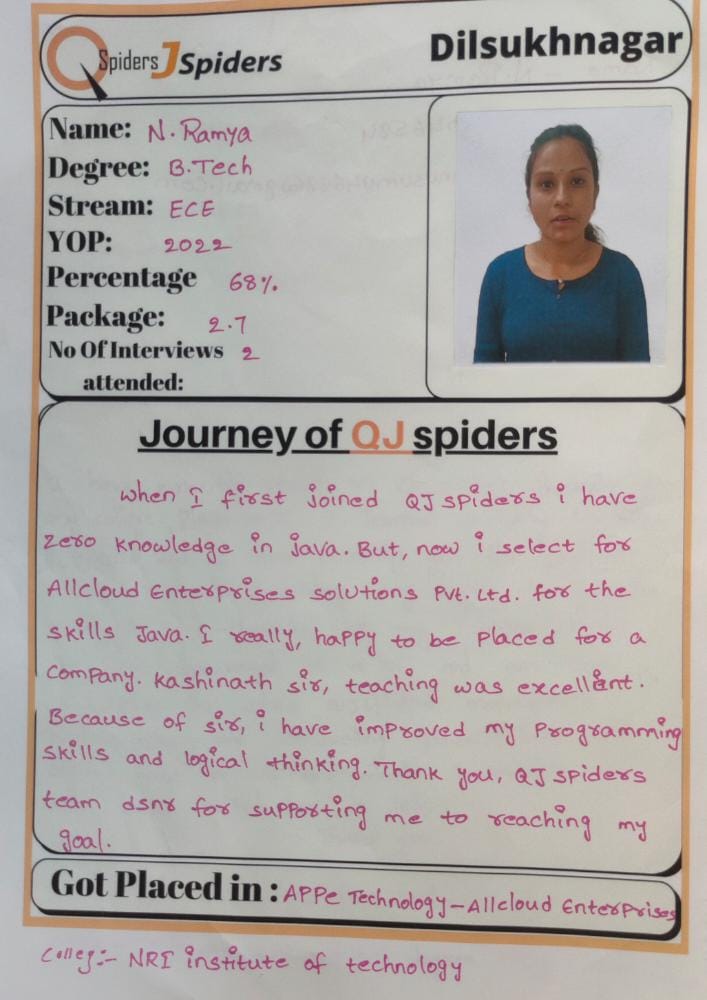 QSpiders JSpiders Dilsukhnagar
Name: N. Ramya
Degree: B.Tech
Stream: ECE
YOP: 2022
Percentage 68%.
Package: 2.7
No Of Interviews 2
attended:
Journey of QJ spiders
When I first joined QJ spiders i have
zero knowledge in java. But, now i select for
Allcloud Enterprises solutions Pvt. Ltd. for the
skills Java. I really, happy to be placed for a
company. Kashinath sir, teaching was excellent.
Because of sir, i have improved my programming
skills and logical thinking. Thank you, QJ spiders
team dsnr for supporting me to reaching my
goal.
Got Placed in : APPe Technology - Allcloud Enterprises
Colleg:- NRI institute of technology